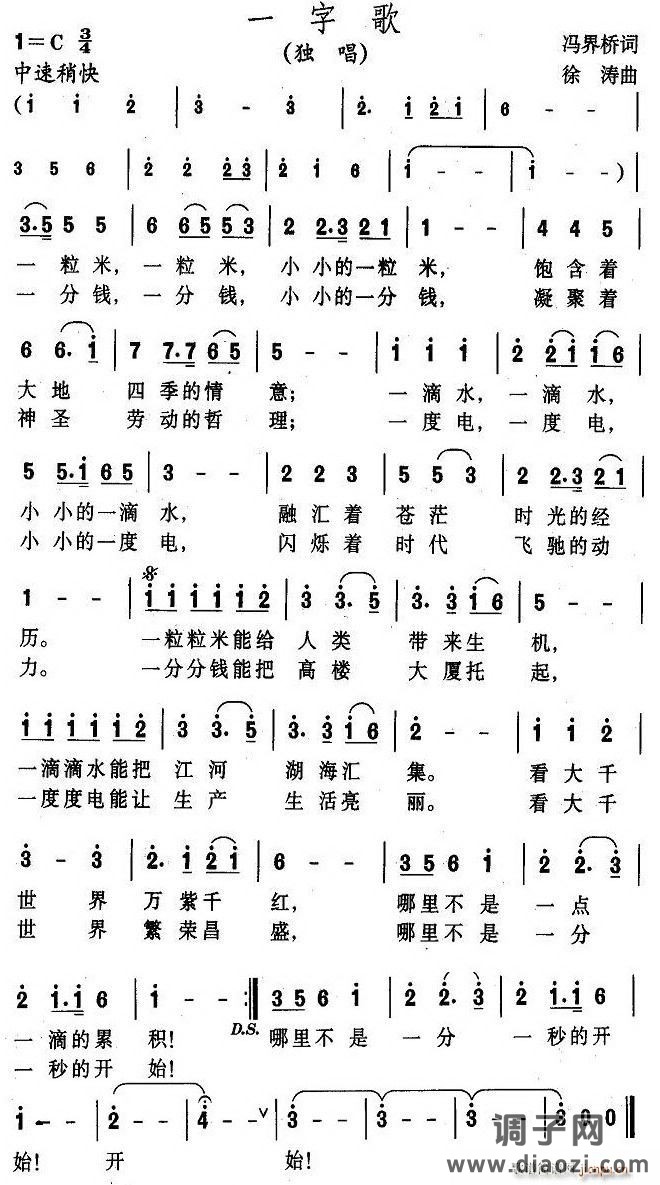 一字歌
1=C 3/4 (独唱) 冯界桥词
中速稍快 徐涛曲
(i i 2 | 3 - 3 | 2. i 2 i | 6 - - |
3 5 6 | 2 2 2 3 | 2 i 6 | i - - | i - - ) |
3.5 5 5 | 6 6 5 5 3 | 2 2.3 2 1 | 1 - - | 4 4 5 |
一粒米, 一粒米, 小小的一粒米, 饱含着
一分钱, 一分钱, 小小的一分钱, 凝聚着
6 6. i | 7 7.7 6 5 | 5 - - | i i i | 2 2 i i 6 |
大地 四季的情 意; 一滴水, 一滴水,
神圣 劳动的哲 理; 一度电, 一度电,
5 5.i 6 5 | 3 - - | 2 2 3 | 5 5 3 | 2 2.3 2 1 |
小小的一滴水, 融汇着 苍茫 时光的经
小小的一度电, 闪烁着 时代 飞驰的动
1 - - | i i i i i 2 | 3 3. 5 | 3. 3 i 6 | 5 - - |
历。 一粒粒米能给 人类 带来生 机,
力。 一分分钱能把 高楼 大厦托 起,
i i i i i 2 | 3 3. 5 | 3. 3 i 6 | 2 - - | i i 2 |
一滴滴水能把 江河 湖海汇 集。 看大千
一度度电能让 生产 生活亮 丽。 看大千
3 - 3 | 2. i 2 i | 6 - - | 3 5 5 6 i | 2 2. 3 |
世界 万紫千 红, 哪里不是 一点
世界 繁荣昌 盛, 哪里不是 一分
2 i.i 6 | i - - :| 3 5 5 6 i | 2 2. 3 | 2 i.i 6 |
一滴的累 积! D.S. 哪里不是 一分 一秒的开
一秒的开 始!
i - - | 2 - - | 4 - - ∨ | 3 - - | 3 - - | 3 - - | 3 0 0 ‖
始! 开 始!
调子网
www.diaozi.com